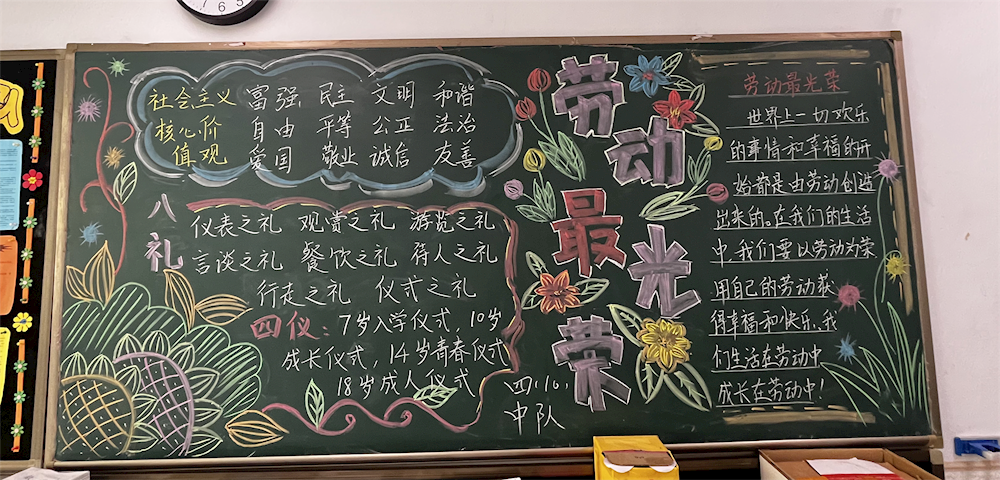 社会主义 富强 民主 文明 和谐
核心价 自由 平等 公正 法治
值观 爱国 敬业 诚信 友善
八礼
仪表之礼 观赏之礼 游览之礼
言谈之礼 餐饮之礼 待人之礼
行走之礼 仪式之礼
四仪：7岁入学仪式，10岁
成长仪式，14岁青春仪式
18岁成人仪式
四（10）
中队
劳动最光荣
劳动最光荣
世界上一切欢乐
的事情和幸福的开
始都是由劳动创造
出来的。在我们的生活
中，我们要以劳动为荣
用自己的劳动获
得幸福和快乐，我
们生活在劳动中
成长在劳动中！